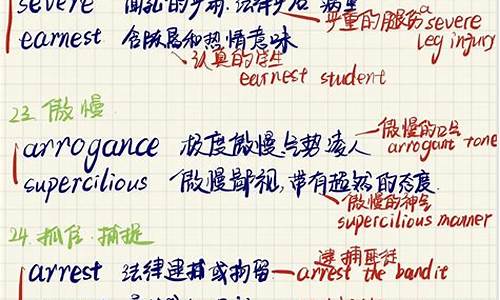 severe
严重的腿伤 a severe leg injury
earnest 含既局和热情意味
认真的学生
earnest student
23. 傲慢
arrogance 极度傲慢.气势凌人 傲慢的口气
arrogant tone
supercilious 傲慢鄙视,带有超然的态度.
傲慢的神气
supercilious manner
24. 抓住.捕捉
arrest 法律逮捕或拘留 逮捕匪徒
arrest the bandit